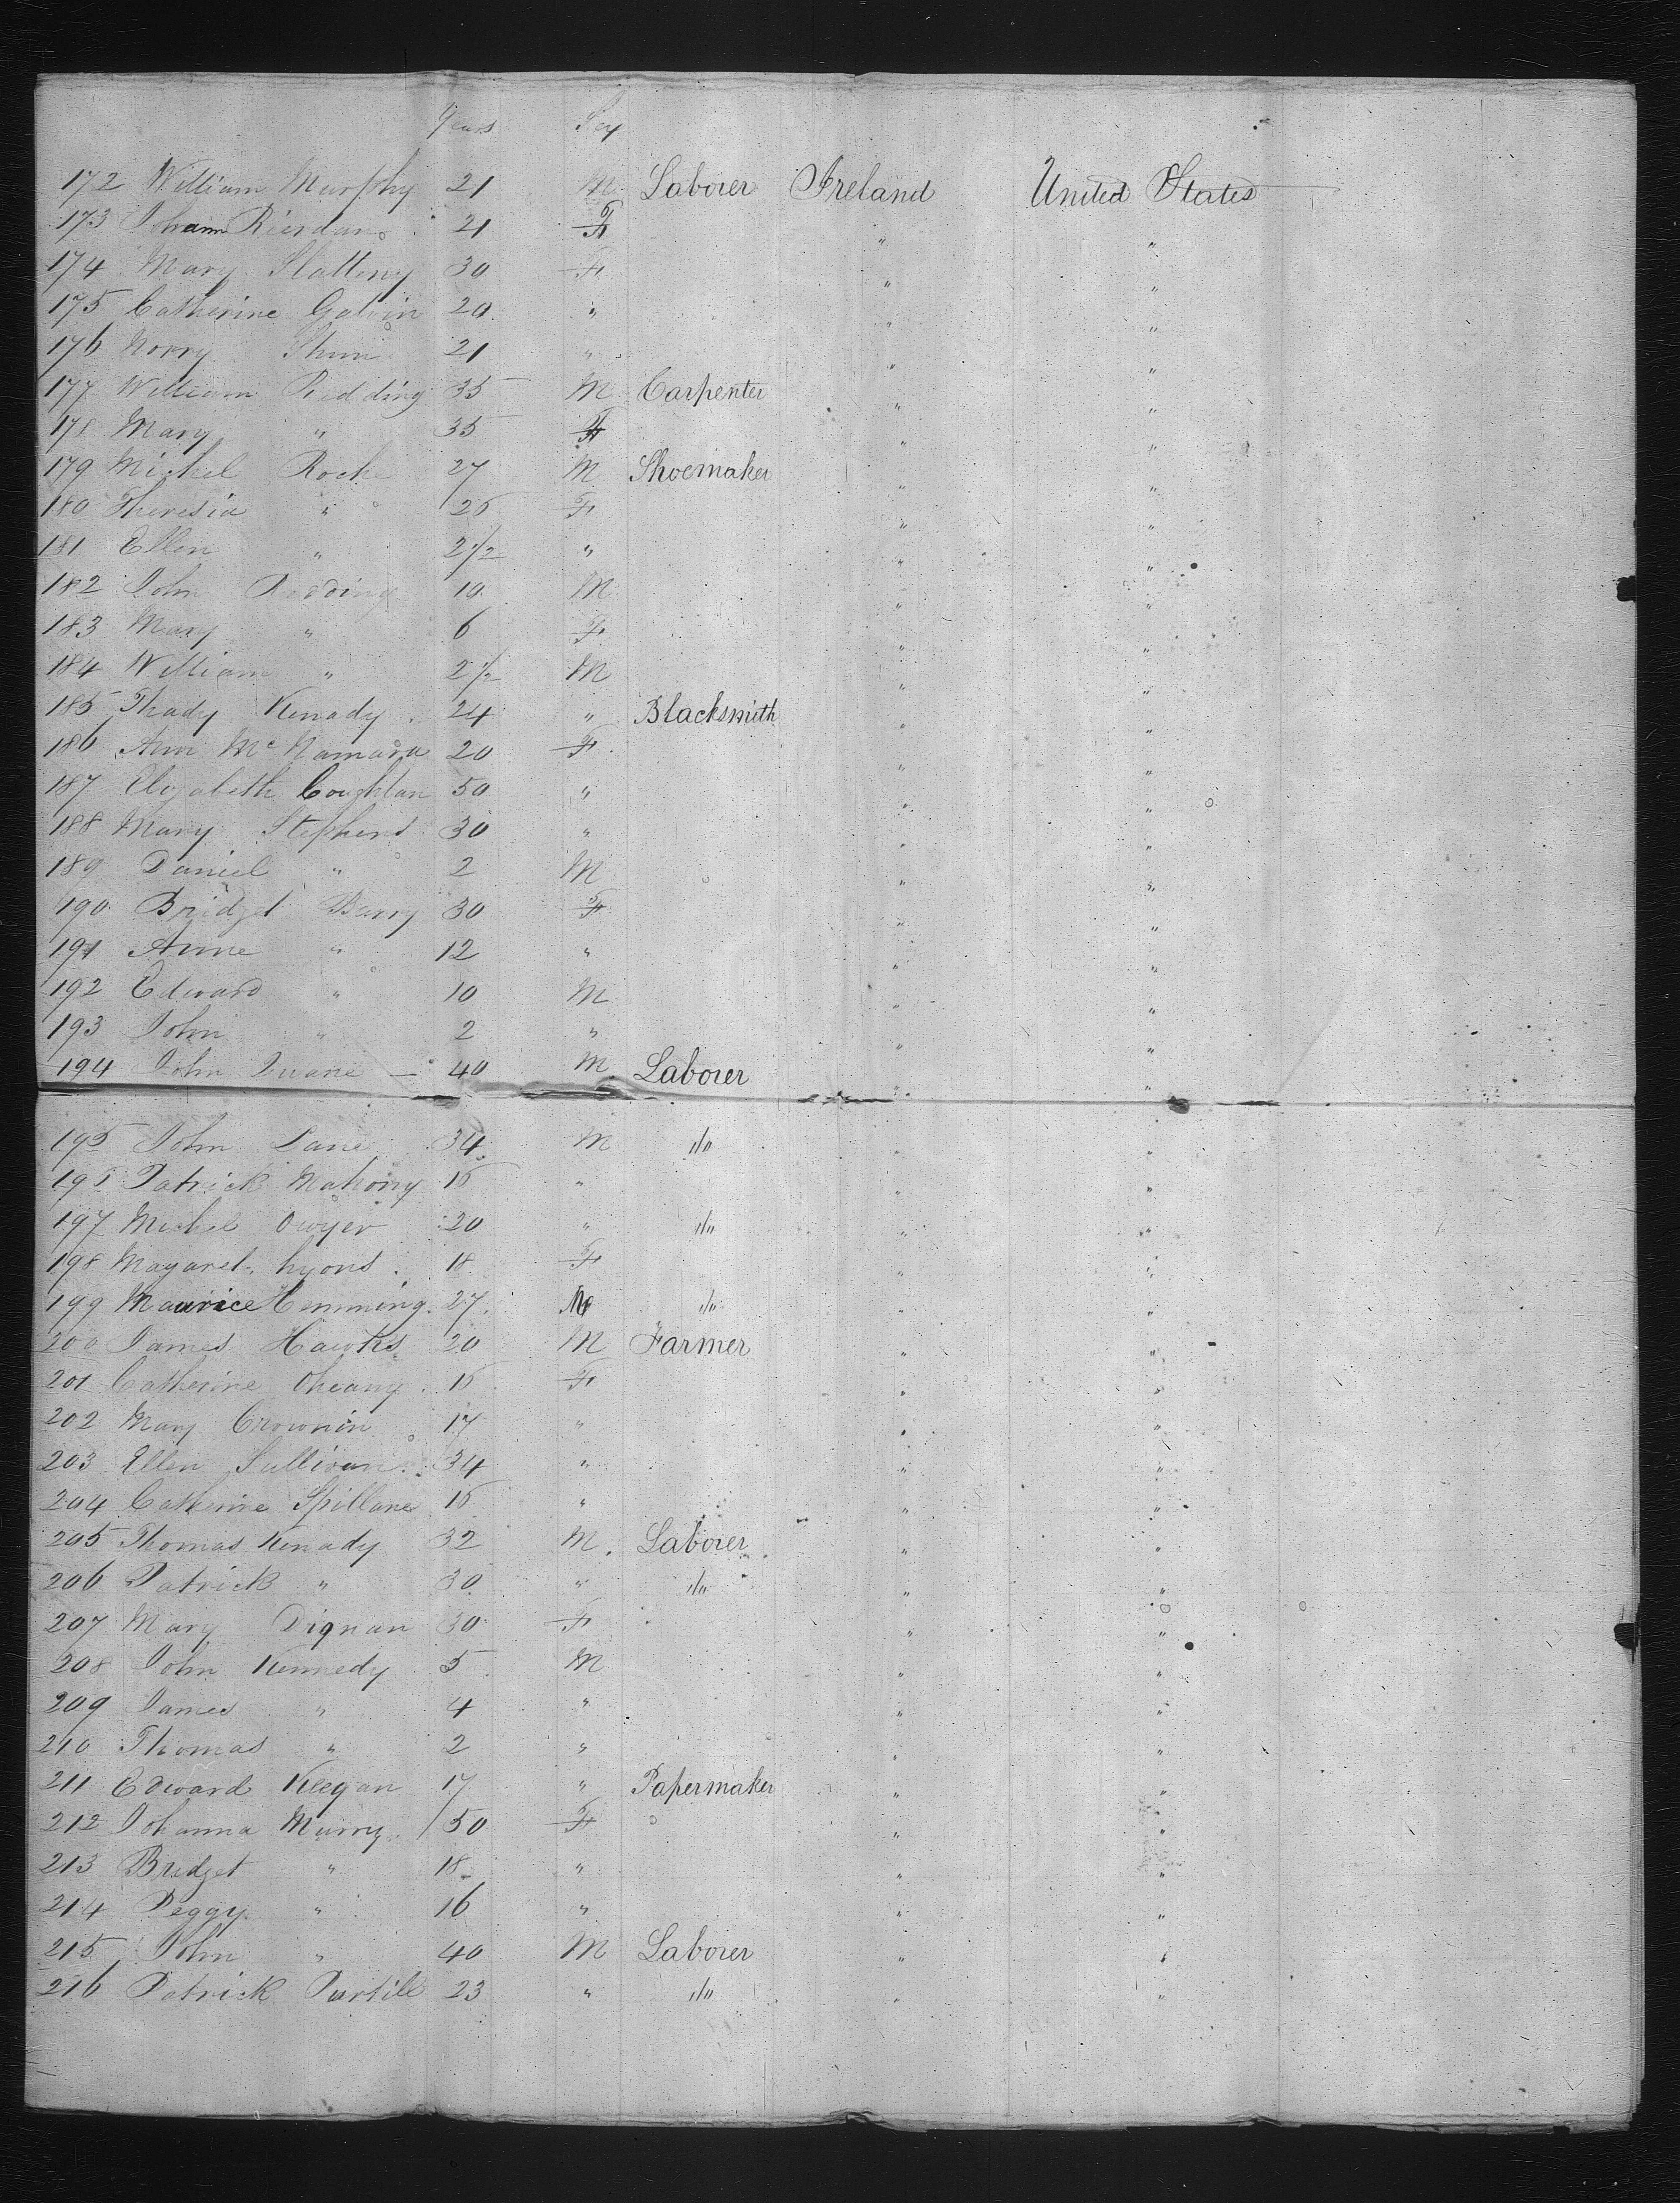 Years Sex
172 William Murphy 21 M. Laborer Ireland United States
173 Johann Rierdan 21 F " "
174 Mary Slattery 30 F " "
175 Catherine Galvin 20 " " "
176 Norry 21 " " "
177 William Redding 35 M Carpenter " "
178 Mary " 35 F " "
179 Michel Roche 27 M Shoemaker " "
180 Theresia " 25 F " "
181 Ellen " 2 1/2 " " "
182 John Redding 10 M " "
183 Mary " 6 F " "
184 William " 2 1/2 M " "
185 Thady Kenady 24 " Blacksmith " "
186 Ann McNamara 20 F " "
187 Elizabeth Coughlan 50 " " "
188 Mary Stephens 30 " " "
189 Daniel " 2 M " "
190 Bridget Barry 30 F " "
191 Anne " 12 " " "
192 Edward " 10 M " "
193 John " 2 " " "
194 John Duane 40 M Laborer " "
195 John Lane 34 M "/" " "
196 Patrick Mahony 15 " " "
197 Michel Owyer 20 " "/" " "
198 Magaret Lyons 18 F " "
199 Maurice Hemming 27 M "/" " "
200 James Hawks 20 M Farmer " "
201 Catherine 15 F " "
202 Mary Crownin 17 " " "
203 Ellen Sullivan 34 " " "
204 Catherine Spillane 15 " " "
205 Thomas Kenady 32 M. Laborer " "
206 Patrick " 30 " "/" " "
207 Mary Dignan 30 F " "
208 John Kennedy 5 M " "
209 James " 4 " " "
210 Thomas " 2 " " "
211 Edward Keegan 17 " Papermaker " "
212 Johanna Murry 50 F " "
213 Bridget " 18 " " "
214 Peggy " 16 " " "
215 John " 40 M Laborer " "
216 Patrick Purtill 23 " "/" " "